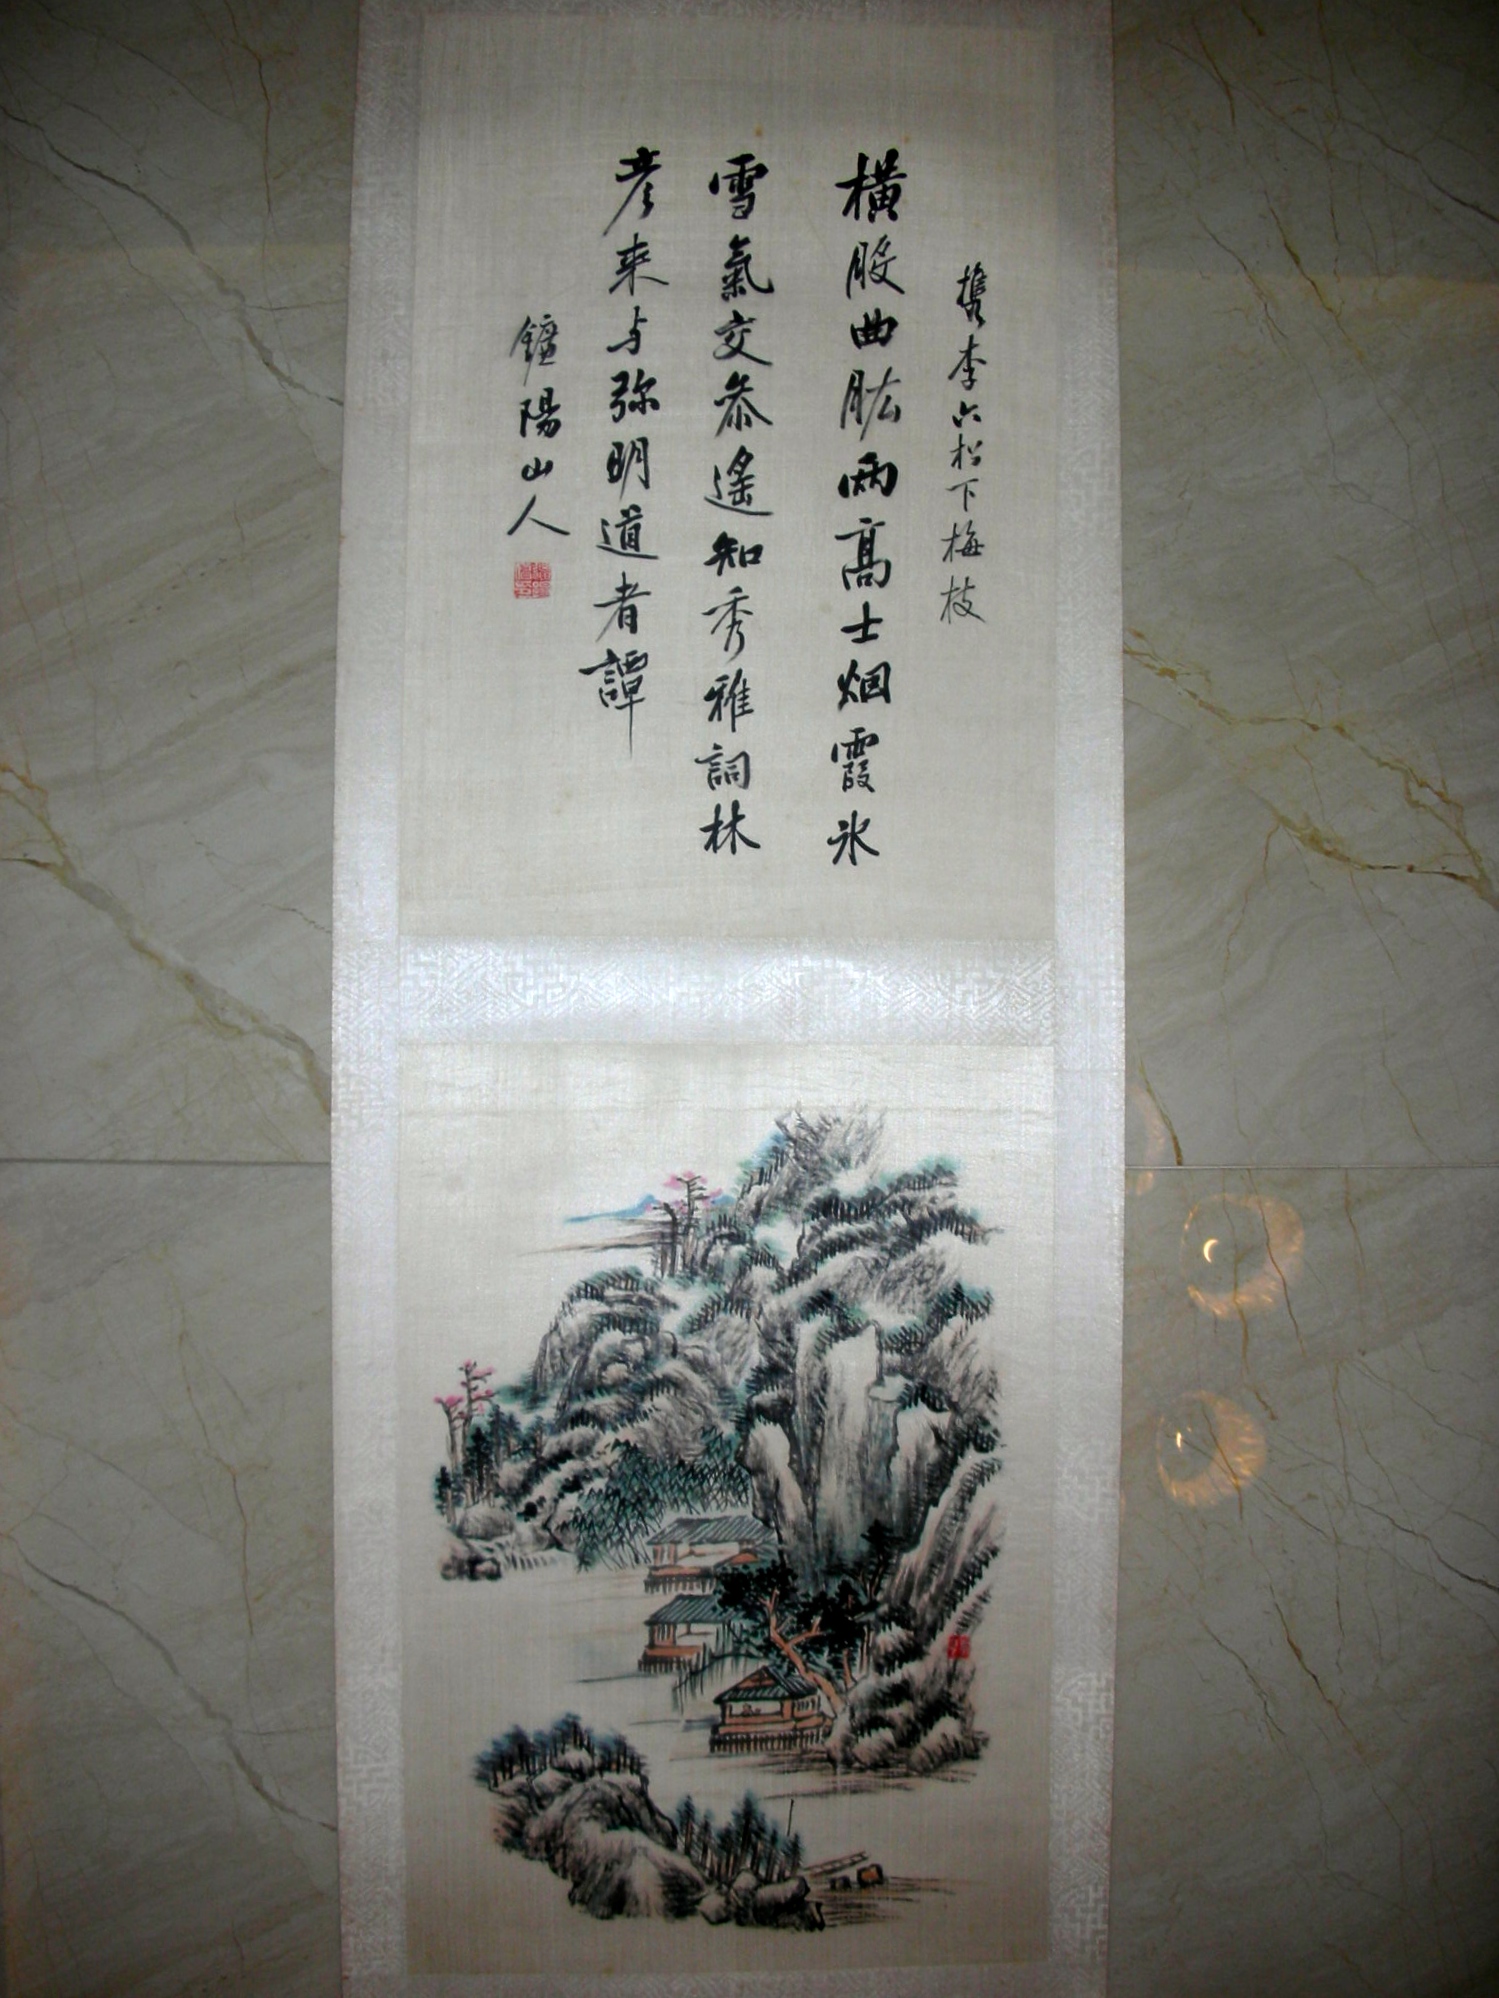 携李六松下梅枝
橫股曲肱兩高士烟霞氷
雪氣交叅遙知秀雅詞林
彦来与弥明道者譚
鑪陽山人